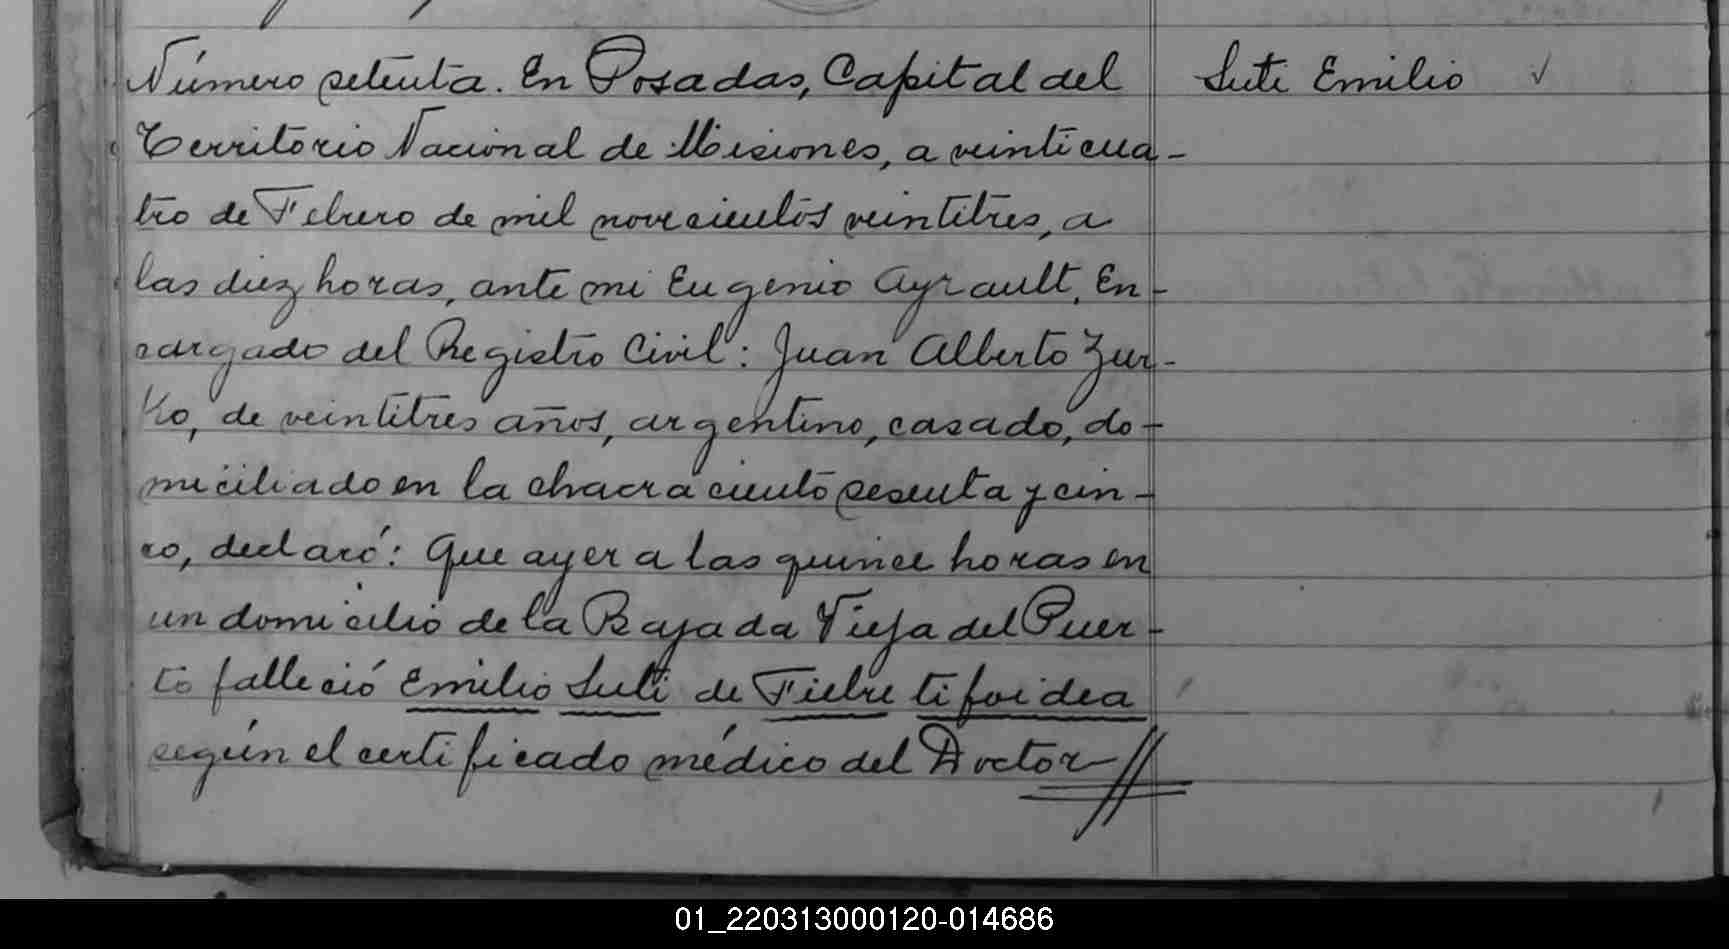 Número setenta. En Posadas, Capital del
Suti Emilio ✓
Territorio Nacional de Misiones, a veinticua-
tro de Febrero de mil novecientos veintitres, a
las diez horas, ante mi Eugenio Ayrault, En-
cargado del Registro Civil: Juan Alberto Zur-
Ko, de veintitres años, argentino, casado, do-
miciliado en la chacra ciento sesenta y cin-
co, declaró: Que ayer a las quince horas en
un domicilio de la Bajada Vieja del Puer-
to falleció Emilio Suti de Fiebre tifoidea
según el certificado médico del Doctor //
01_220313000120-014686